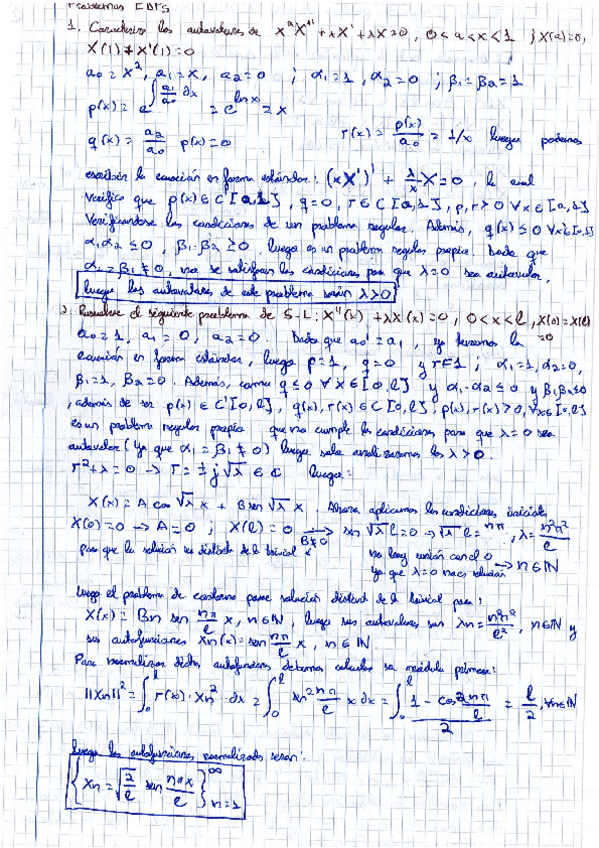 Problemas EDPs
1. Caracterizar los autovalores de x²X'' + xX' + λX=0, 0<a<x<1 ; X(a)=0,
X(1)+X'(1)=0
a₀=x², a₁=x, a₂=0 ; α₁=1, α₂=0 ; β₁=β₂=1
p(x)= e^∫ a₁/a₀ dx = e^ln x = x
q(x)= a₂/a₀ p(x)=0 r(x)= p(x)/a₀ = 1/x luego podemos
escribir la ecuación en forma estándar: (xX')' + λ/x X=0, la cual
verifica que p(x) ∈ C'[a,1], q=0, r ∈ C[a,1], p,r>0 ∀x∈[a,1]
Verificándose las condiciones de un problema regular. Además, q(x)≤0 ∀x∈[a,1]
α₁α₂≤0, β₁·β₂≥0 luego es un problema regular propio. Dado que
α₁=β₁≠0, no se satisfacen las condiciones para que λ=0 sea autovalor,
luego los autovalores de este problema serán λ>0
2. Resolver el siguiente problema de S-L: X''(x) + λX(x)=0, 0<x<l, X(0)=X(l)
=0
a₀=1, a₁=0, a₂=0. Dado que a₀'=a₁, ya tenemos la
ecuación en forma estándar, luego p=1, q=0 y r=1 ; α₁=1, α₂=0,
β₁=1, β₂=0. Además, como q≤0 ∀x∈[0,l] y α₁·α₂≤0 y β₁β₂≥0
, además de ser p(x) ∈ C'[0,l], q(x), r(x) ∈ C[0,l], p(x), r(x)>0, ∀x∈[0,l]
es un problema regular propio que no cumple las condiciones para que λ=0 sea
autovalor (ya que α₁=β₁≠0) luego solo analizaremos los λ>0.
r²+λ=0 → r=±j√λ ∈ ℂ luego:
X(x)= A cos √λ x + B sen √λ x. Ahora aplicamos las condiciones iniciales
X(0)=0 → A=0 ; X(l)=0 → B≠0 sen √λ l=0 → √λ l= nπ, λ= n²π²/l
para que la solución sea distinta de la trivial no hay unión con el 0 → n∈ℕ
ya que λ=0 no es solución
luego el problema de contorno posee solución distint de la trivial para:
X(x)= Bn sen nπ/l x, n∈ℕ, luego sus autovalores son λn= n²π²/l², n∈ℕ y
sus autofunciones Xn(x)= sen nπ/l x, n∈ℕ.
Para normalizar dichas autofunciones debemos calcular su módulo primero:
||Xn||² = ∫₀ˡ r(x)·Xn²·dx = ∫₀ˡ sen² nπ/l x dx = ∫₀ˡ (1 - cos 2nπ/l)/2 = l/2, ∀n∈ℕ
luego las autofunciones normalizadas serán:
{Xn = √(2/l) sen nπx/l}_{n=1}^∞